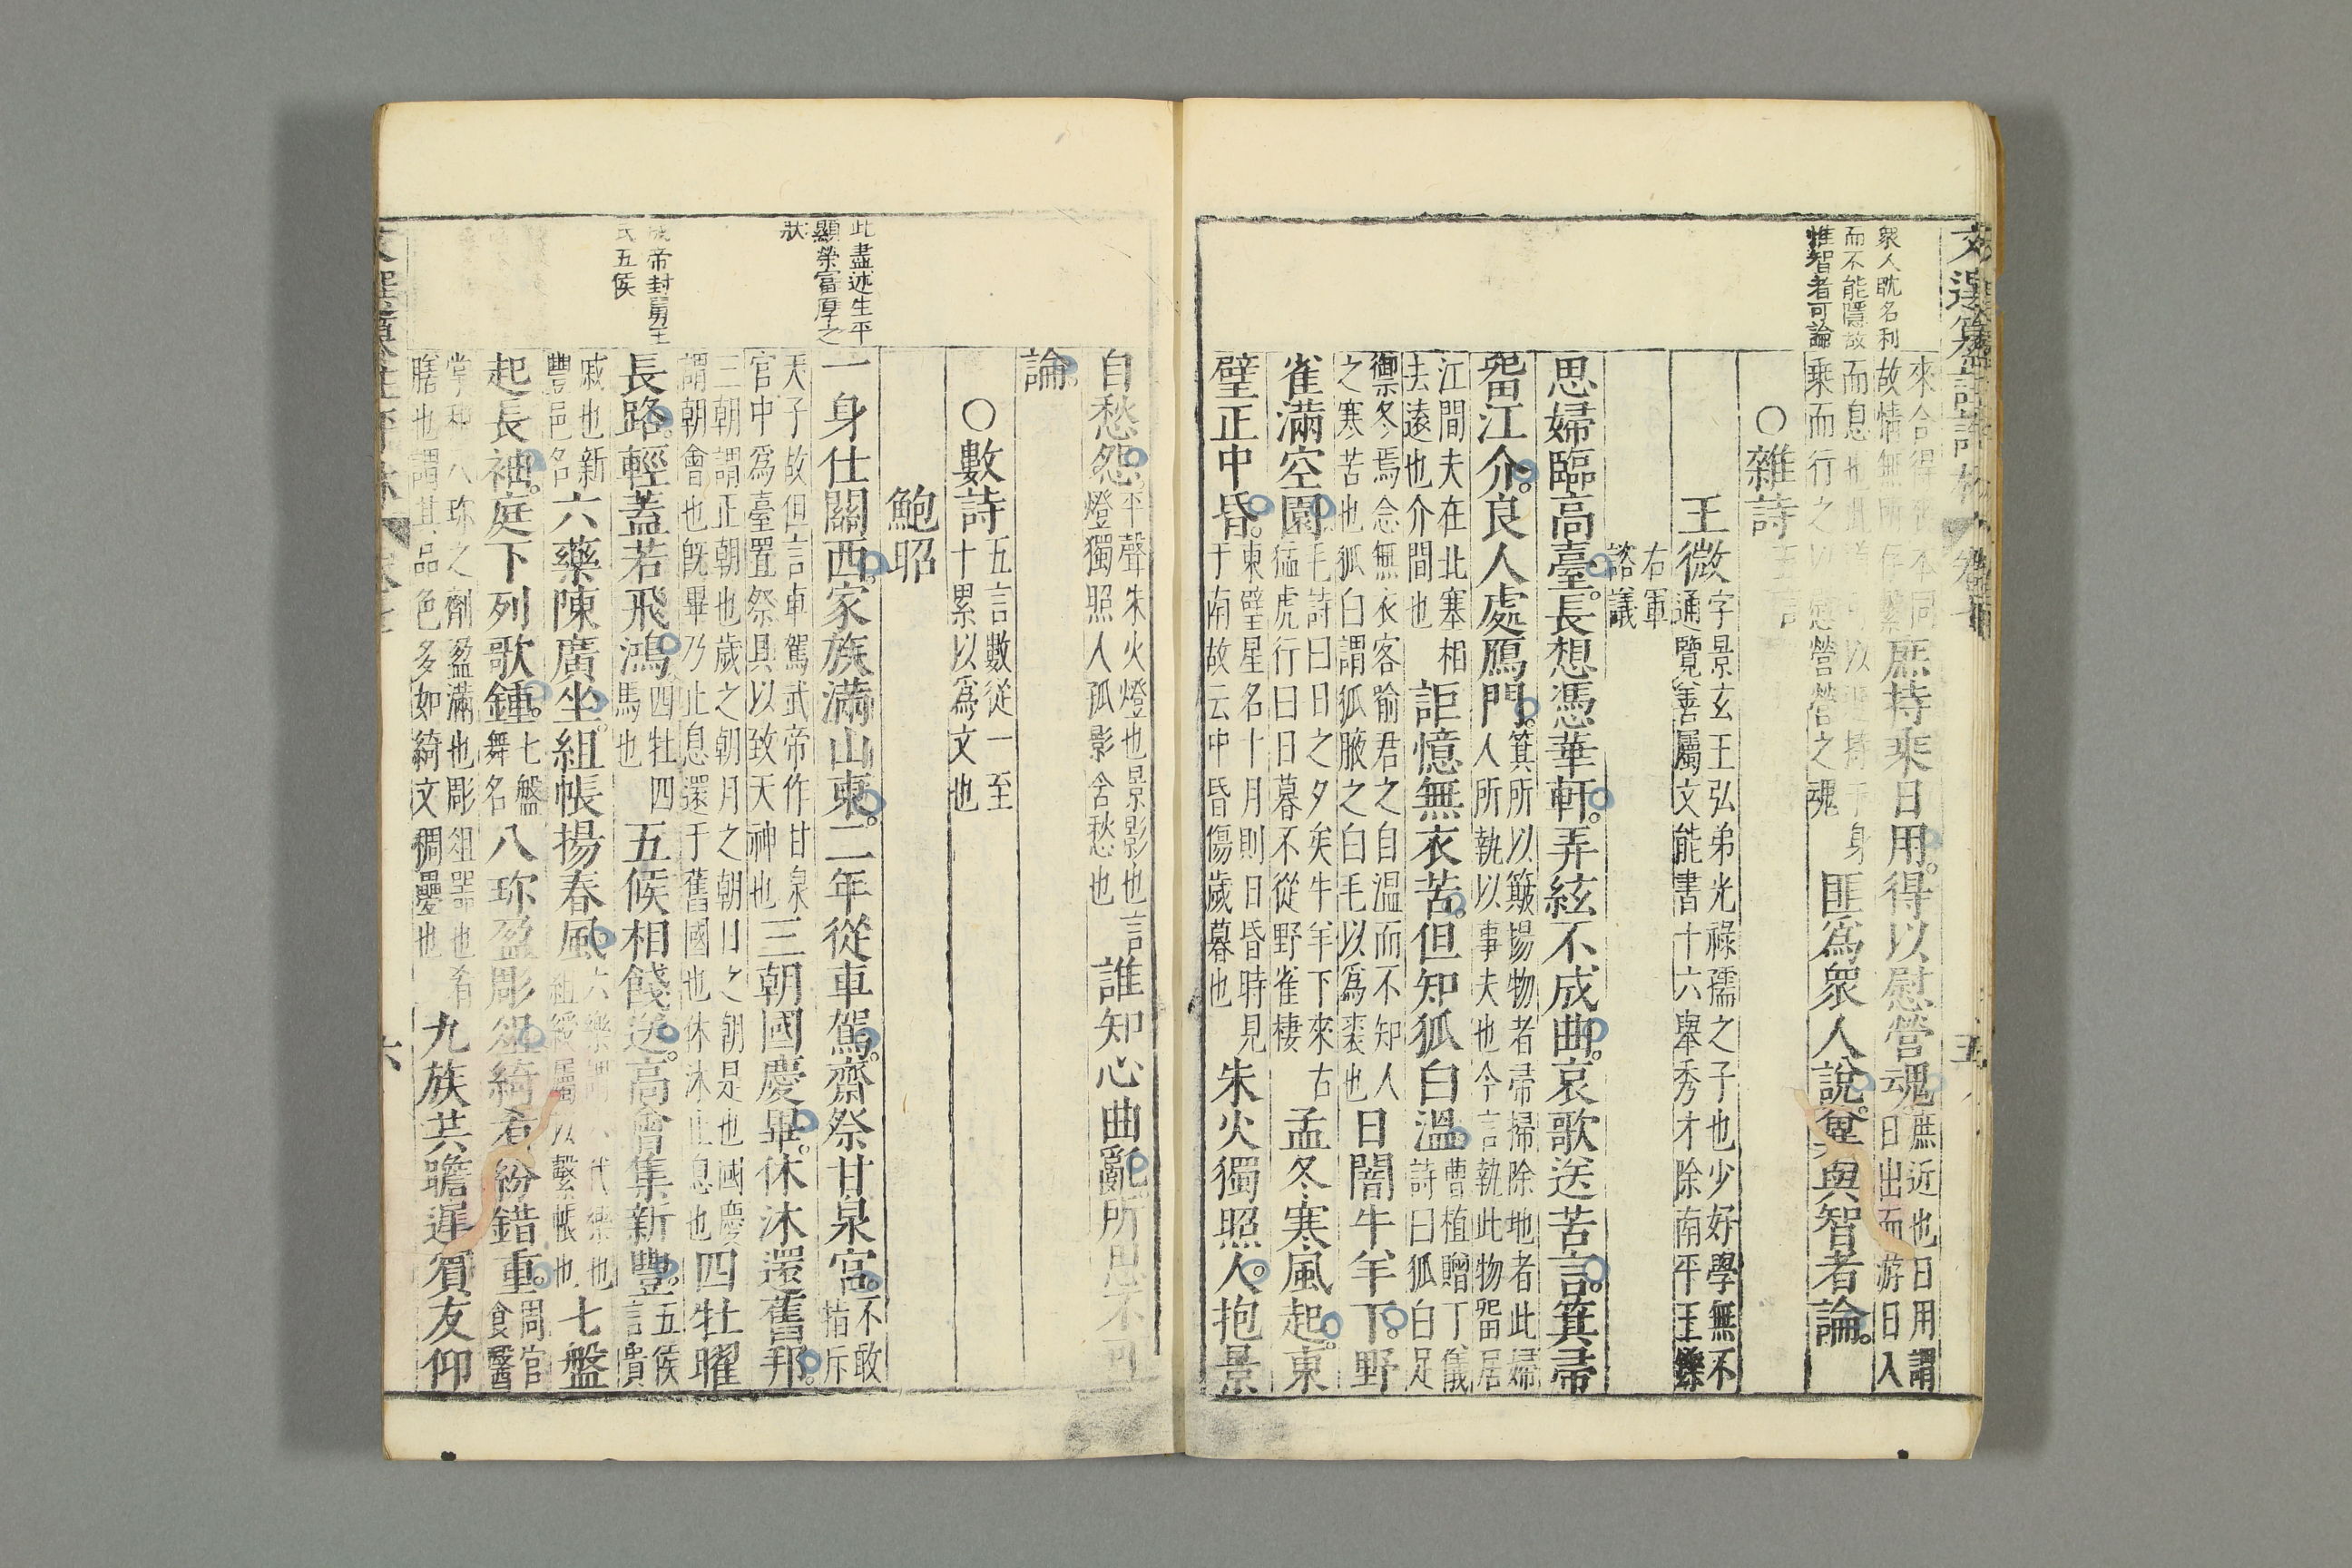 衆人耽名利
而不能隱故
惟智者可論
庶持乘日用。得以慰營魂。庶近也日用謂
日出而游日入
而息也
乘而行之以慰營營之魂
匪爲衆人說。冀與智者論。
○雜詩
王微字景玄王弘弟光祿孺之子也少好學無不
通覽善屬文能書十六舉秀才除南平王鑠
右軍
諮議
思婦臨高臺。長想憑華軒。弄絃不成曲。哀歌送苦言。箕帚
畱江介。良人處鴈門。箕所以簸揚物者帚掃除地者此婦
人所執以事夫也今言執此物畱居
江間夫在北塞相
去遠也介間也
詎憶無衣苦。但知狐白溫。曹植贈丁儀
詩曰狐白足
禦冬焉念無衣客喻君之自溫而不知人
之寒苦也狐白謂狐腋之白毛以爲裘也
日闇牛羊下。野
雀滿空園。毛詩曰日之夕矣牛羊下來右
猛虎行曰日暮不從野雀棲
孟冬寒風起。東
壁正中昏。東壁星名十月則日昏時見
于南故云中昏傷歲暮也
朱火獨照人。抱景
自愁怨。平聲朱火燈也景影也言
燈獨照人孤影含愁也
誰知心曲亂。所思不可
論。
○數詩五言數從一至
十累以爲文也
鮑昭
此盡述生平
顯榮富厚之
狀
一身仕關西。家族滿山東。二年從車駕。齋祭甘泉宮。不敢
指斥
天子故但言車駕武帝作甘泉
官中爲臺置祭具以致天神也
三朝國慶畢。休沐還舊邦。
三朝謂正朝也歲之朝月之朝日之朝是也國慶
謂朝會也旣畢乃止息還于舊國也休沐止息也
四牡曜
成帝封舅王
氏五侯
長路。輕蓋若飛鴻。四牡四
馬也
五侯相餞送。高會集新豐。五侯
言貴
戚也新
豐邑名
六藥陳廣坐。組帳揚春風。六樂謂六代樂也
組綬屬以繫帳也
七盤
起長袖。庭下列歌鍾。七盤
舞名
八珍盈彫俎。綺肴紛錯重。周官
食醫
掌和八珍之劑盈滿也彫俎器也肴
膳也謂其品色多如綺文稠疊也
九族共瞻遲。賓友仰
六